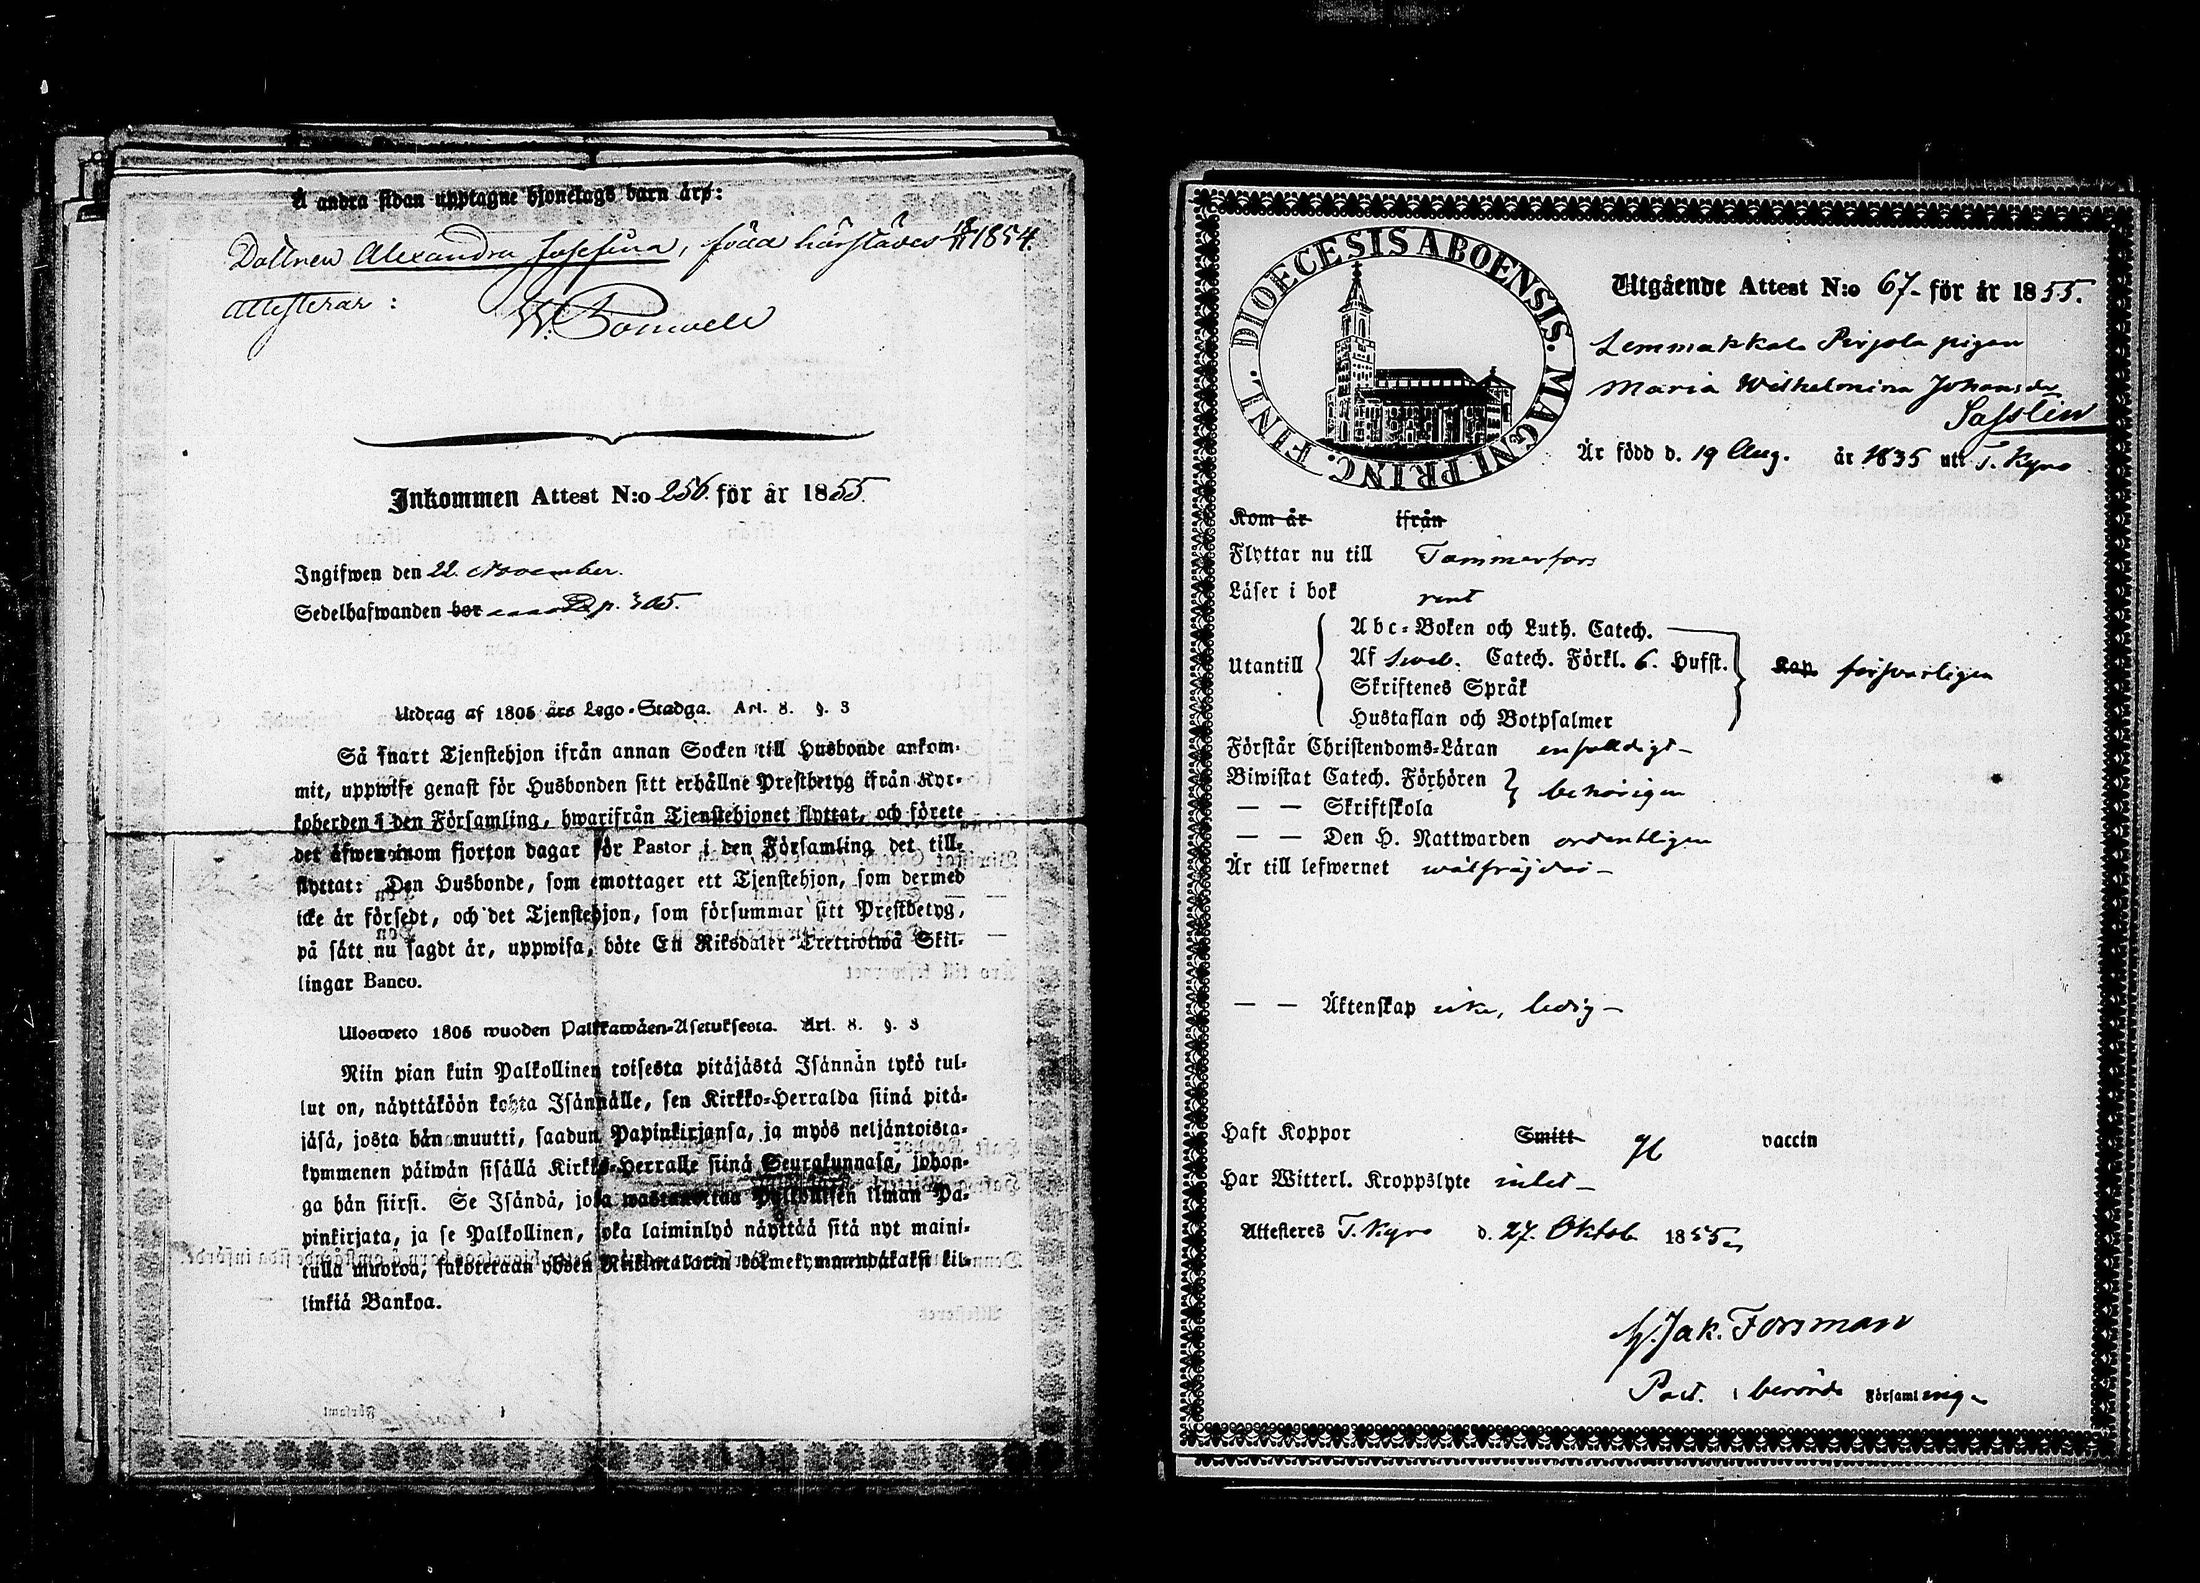 Å andra sidan upptagne hjonelags barn äro:
Dottren Alexandra Josefina, född härstädes 1854.
Attesterar:
Inkommen Attest N:o 256. för år 1855.
Ingifwen den 22. November.
Sedelhafwanden bor p. 305.
Utdrag af 1805 års Lego-Stadga. Art. 8. §. 3
Så snart Tjenstehjon ifrån annan Socken till Husbonde ankom-
mit, uppwise genast för Husbonden sitt erhållne Prestbetyg ifrån Kyr-
koherden i den Församling, hwarifrån Tjenstehjonet flyttat, och förete
det äfwen inom fjorton dagar för Pastor i den Församling det till-
flyttat: Den Husbonde, som emottager ett Tjenstehjon, som dermed
icke är försedt, och det Tjenstehjon, som försummar sitt Prestbetyg,
på sätt nu sagdt är, uppwisa, böte En Riksdaler Trettiotwå Skil-
lingar Banco.
Ulosweto 1805 wuoden Palkkawäen-Asetuksesta. Art. 8. §. 3
Niin pian kuin Palkollinen toisesta pitäjästä Isännän tykö tul-
lut on, näyttäköön kohta Isännälle, sen Kirkko-Herralda siinä pitä-
jäsä, josta hän muutti, saadun Papinkirjansa, ja myös neljäntoista-
kymmenen päiwän sisällä Kirkko-Herralle siinä Seurakunnasa, johon-
ga hän siirsi. Se Isändä, joka wastaanottaa Palkollisen ilman Pa-
pinkirjata, ja se Palkollinen, joka laiminlyö näyttää sitä nyt maini-
tulla muotoa, sakotetaan yhden Riikintalarin kolmekymmendäkaksi kil-
linkiä Bankoa.
DIOECESIS ABOENSIS. MAGNI PRINC. FINL.
Utgående Attest N:o 67. för år 1855.
Lemmakkala Pirjola pigan
Maria Wilhelmina Johansdr
Sasslin
Är född d. 19 Aug. år 1835 uti T. Kyro
Kom år ifrån
Flyttar nu till Tammerfors
Läser i bok rent
Abc-Boken och Luth. Catech.
Utantill Af Sveb. Catech. Förkl. 6. Hufst. Kap. försvarligen
Skriftenes Språk
Hustaflan och Botpsalmer
Förstår Christendoms-Läran enfaldigt
Biwistat Catech. Förhören behörigen
— — Skriftskola
— — Den H. Nattwarden ordentligen
Är till lefwernet wälfräjdad
— — Äktenskap icke, ledig
Haft Koppor Smitt vaccin
Har Witterl. Kroppslyte intet
Attesteres T. Kyro d. 27. Oktob. 1855
Jak. Forsman
Past. i berörde Församling